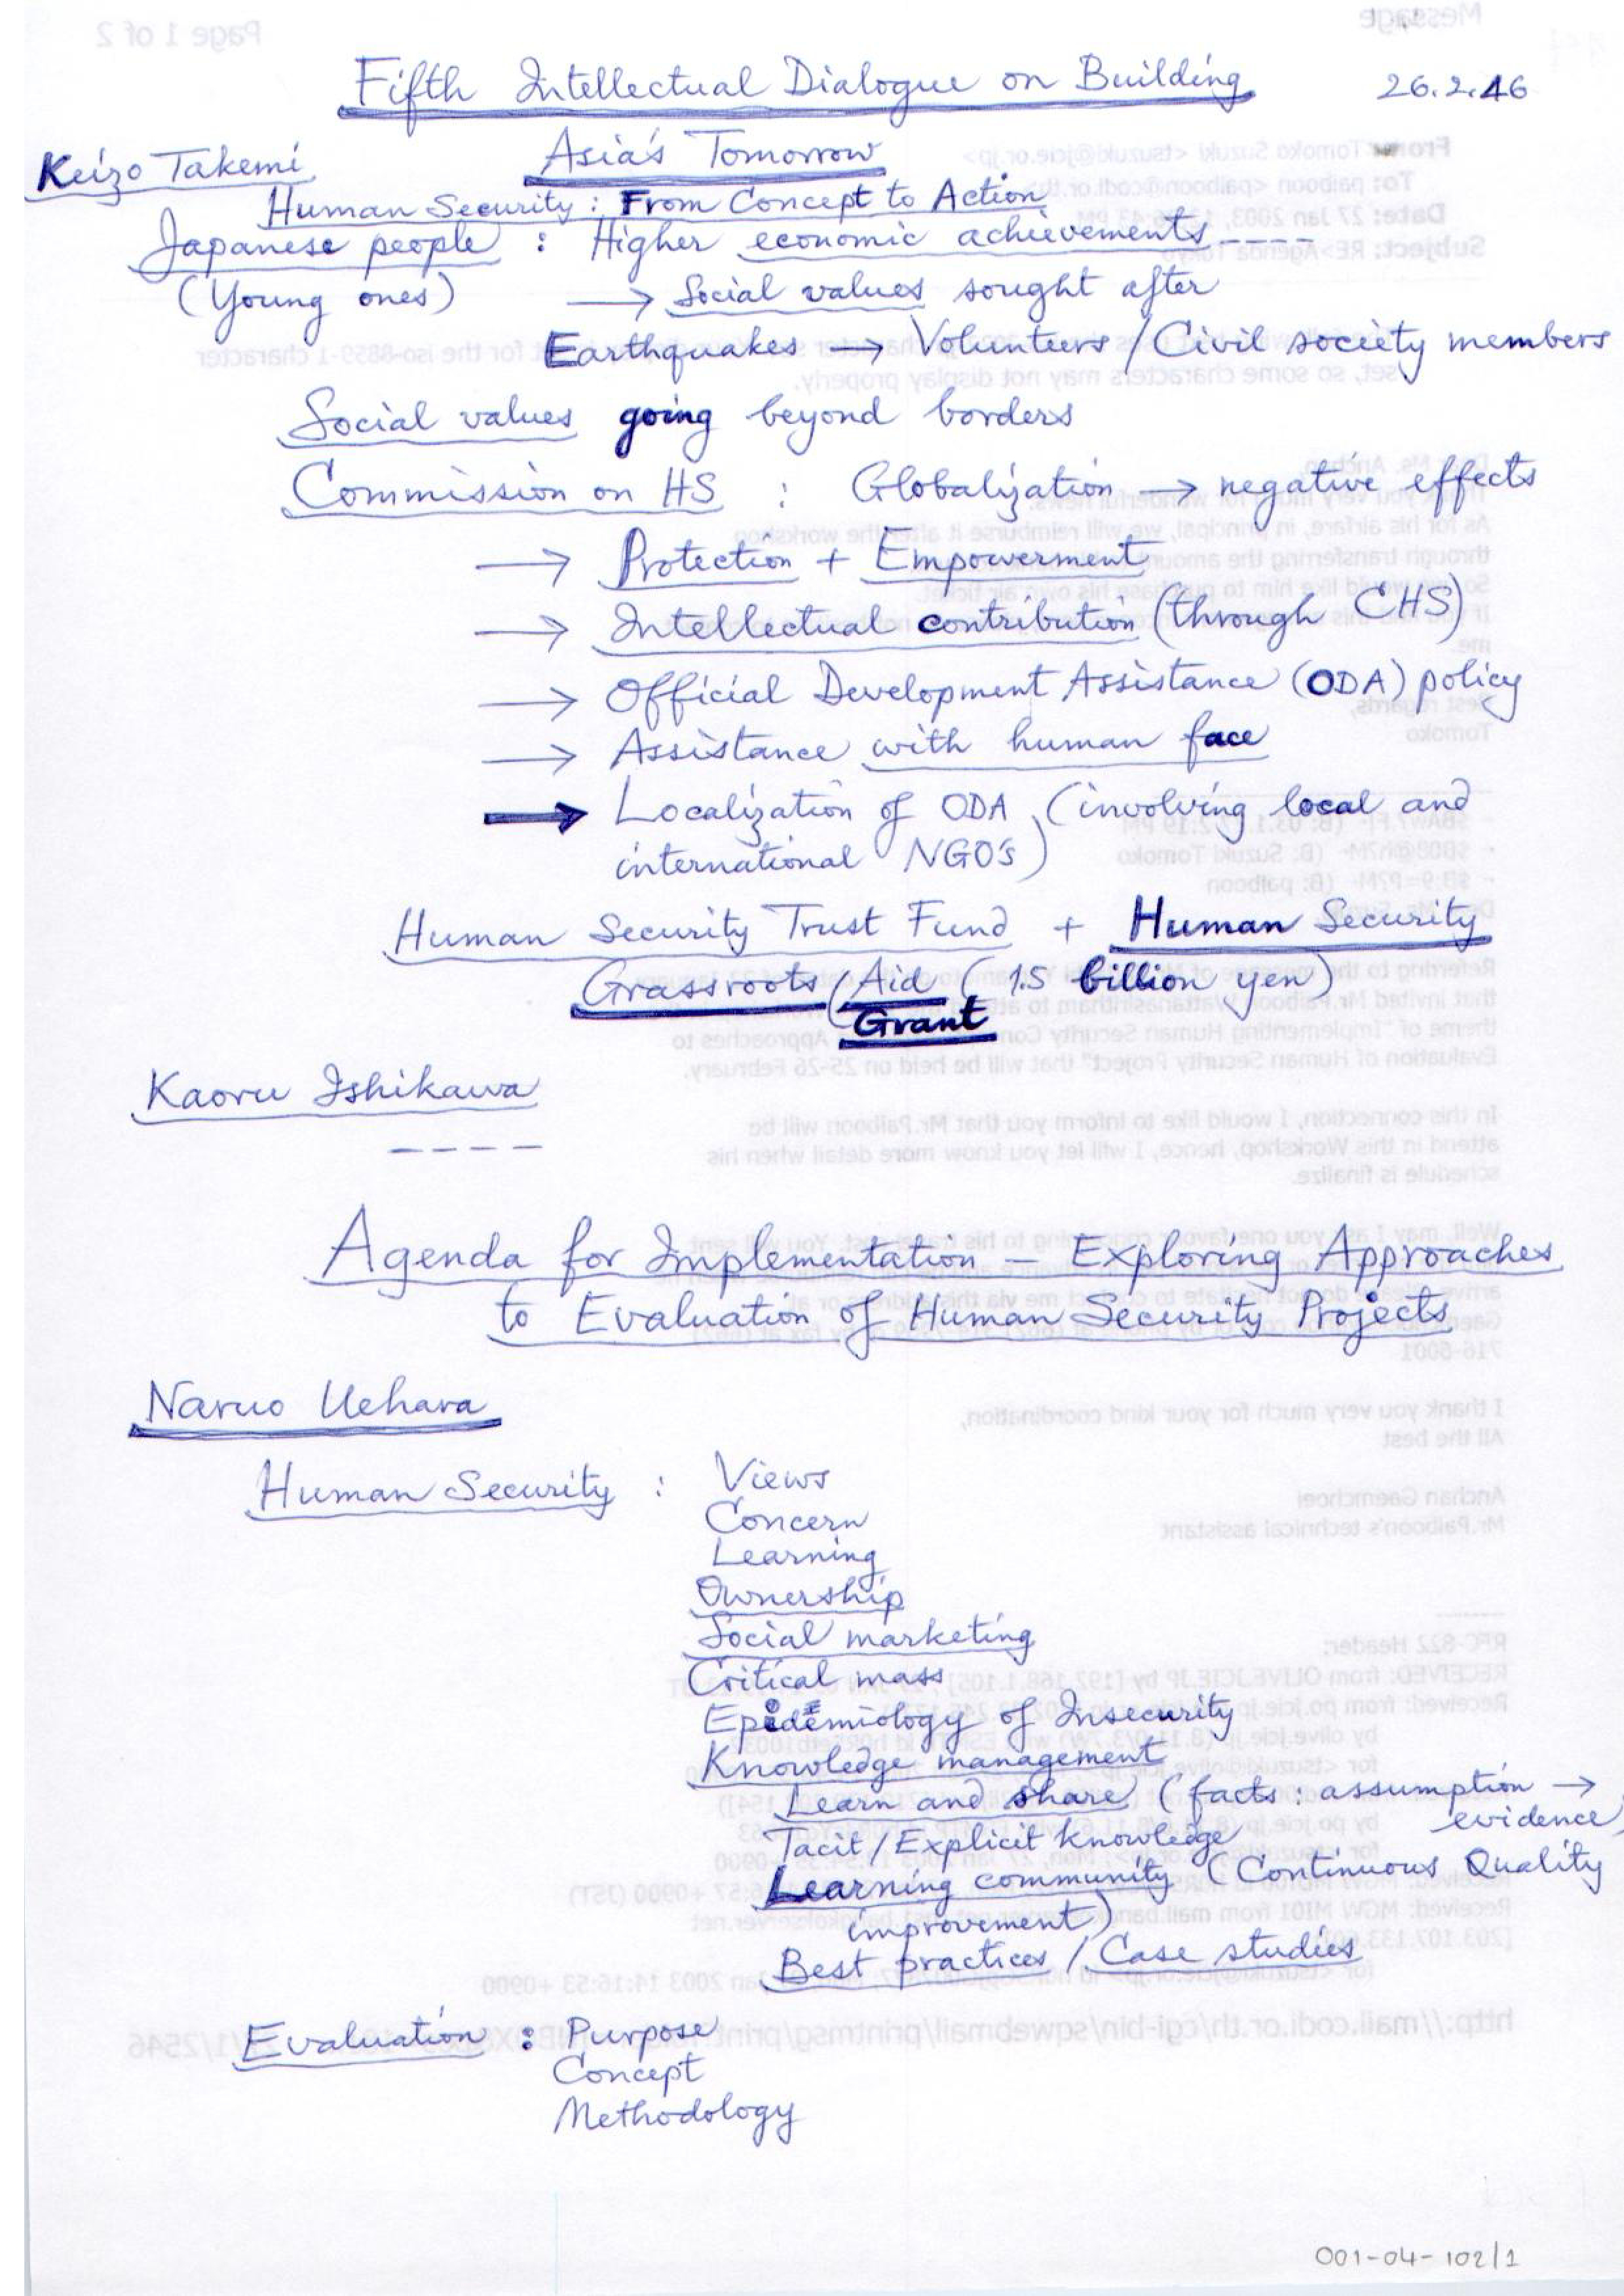 Fifth Intellectual Dialogue on Building 26.2.46
Asia's Tomorrow
Keizo Takemi
Human Security : From Concept to Action
Japanese people : Higher economic achievements ----
(Young ones) → Social values sought after
Earthquakes → Volunteers / Civil society members
Social values going beyond borders
Commission on HS : Globalization → negative effects
→ Protection + Empowerment
→ Intellectual contribution (through CHS)
→ Official Development Assistance (ODA) policy
→ Assistance with human face
→ Localization of ODA (involving local and
international NGO's)
Human Security Trust Fund + Human Security
Grassroots / Aid (1.5 billion yen)
Grant
Kaoru Ishikawa
----
Agenda for Implementation — Exploring Approaches
to Evaluation of Human Security Projects
Naruo Uehara
Human Security : Views
Concern
Learning
Ownership
Social marketing
Critical mass
Epidemiology of Insecurity
Knowledge management
Learn and share (facts : assumption →
evidence)
Tacit / Explicit knowledge
Learning community (Continuous Quality
improvement)
Best practices / Case studies
Evaluation : Purpose
Concept
Methodology
001-04-102/1